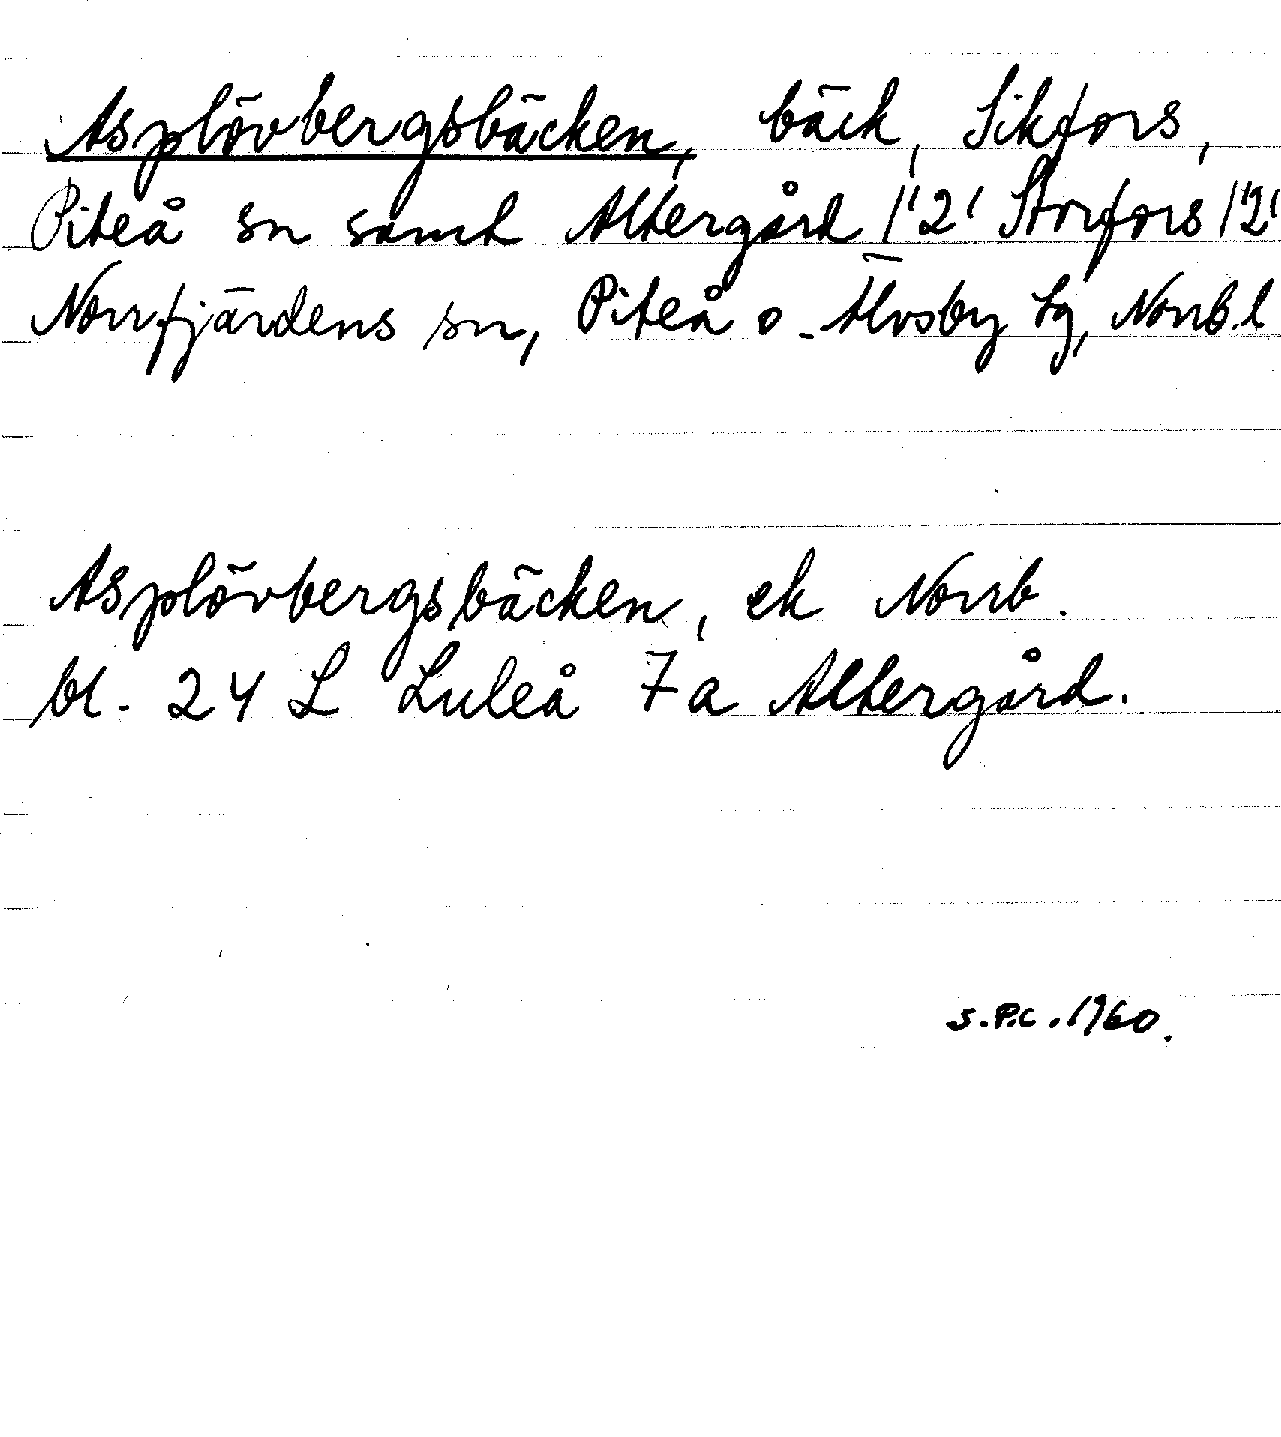 Asplövbergsbäcken, bäck, Sikfors,
Piteå sn samt Altergård 1'2' Storfors 1'2'
Norrfjärdens sn, Piteå o. Älvsby tg, Norrb. l
Asplövbergsbäcken, ek Norrb.
bl. 24 L Luleå 7a Altergård.
S.P.C. 1960.